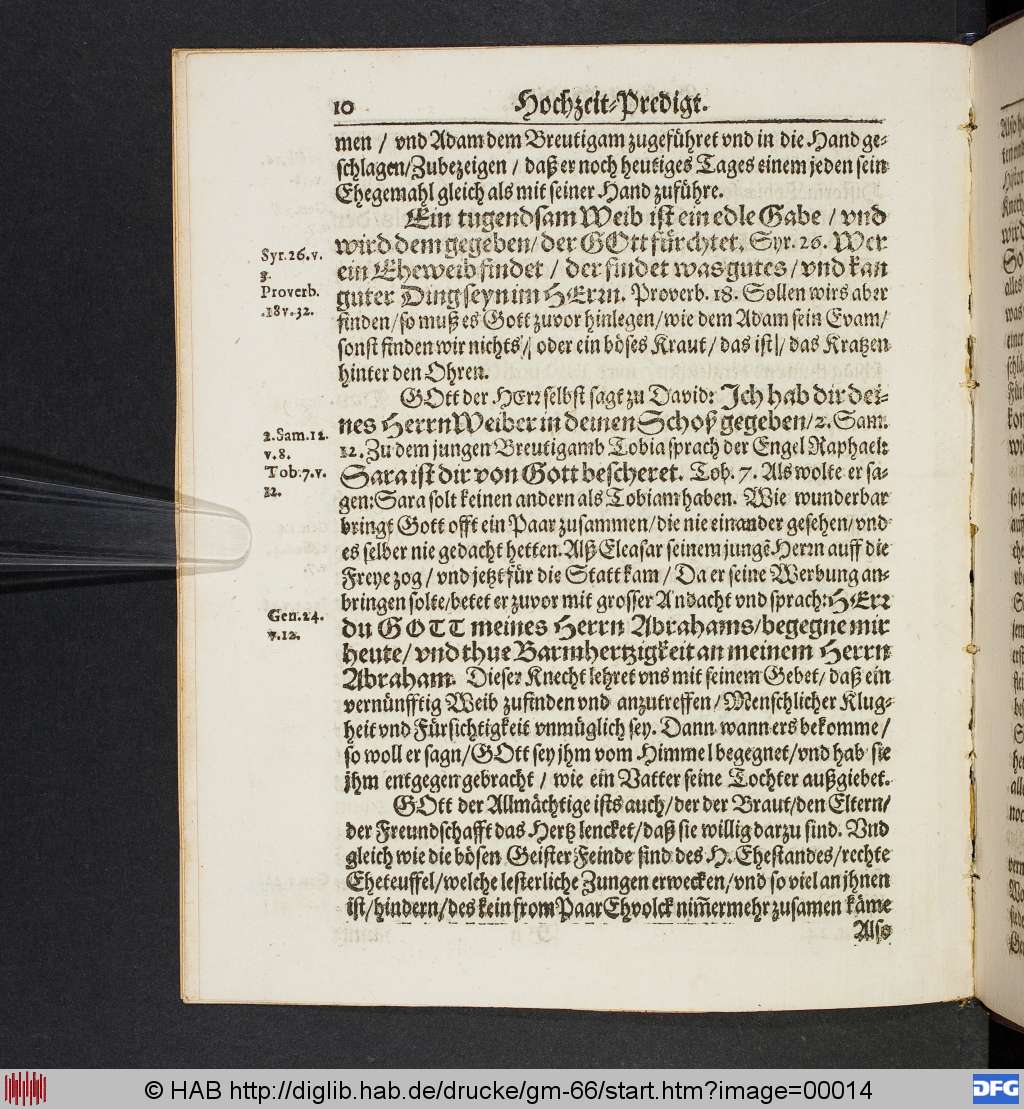 10 Hochzeit-Predigt.
men / vnd Adam dem Breutigam zugeführet vnd in die Hand ge-
schlagen/Zubezeigen / daß er noch heutiges Tages einem jeden sein
Ehegemahl gleich als mit seiner Hand zuführe.
Ein tugendsam Weib ist ein edle Gabe / vnd
wird dem gegeben/ der GOtt fürchtet. Syr. 26. Wer
ein Eheweib findet / der findet was gutes/ vnd kan
guter Ding seyn im HErrn. Proverb. 18. Sollen wirs aber
finden/ so muß es Gott zuvor hinlegen/ wie dem Adam sein Evam/
sonst finden wir nichts/ oder ein böses Kraut/ das ist / das Kratzen
hinter den Ohren.
Syr. 26. v.
3.
Proverb.
.18 v. 32.
GOtt der HErr selbst sagt zu David: Ich hab dir dei-
nes Herrn Weiber in deinen Schoß gegeben/ 2. Sam.
12. Zu dem jungen Breutigamb Tobia sprach der Engel Raphael:
Sara ist dir von Gott bescheret. Tob. 7. Als wolte er sa-
gen: Sara solt keinen andern als Tobiam haben. Wie wunderbar
bringt Gott offt ein Paar zusammen/ die nie einander gesehen/ vnd
es selber nie gedacht hetten. Alß Eleasar seinem jungē Herrn auff die
Freye zog / vnd jetzt für die Statt kam / Da er seine Werbung an-
bringen solte/ betet er zuvor mit grosser Andacht vnd sprach: HErr
du GOTT meines Herrn Abrahams/ begegne mir
heute/ vnd thue Barmhertzigkeit an meinem Herrn
Abraham. Dieser Knecht lehret vns mit seinem Gebet/ daß ein
vernünfftig Weib zufinden vnd anzutreffen/ Menschlicher Klug-
heit vnd Fürsichtigkeit vnmüglich sey. Dann wann ers bekomme/
so woll er sagn/ GOtt sey jhm vom Himmel begegnet/ vnd hab sie
jhm entgegen gebracht / wie ein Vatter seine Tochter außgiebet.
2. Sam. 12.
v. 8.
Tob. 7. v.
12.
Gen. 24.
v. 12.
GOtt der Allmächtige ists auch/ der der Braut/ den Eltern/
der Freundschafft das Hertz lencket/ daß sie willig darzu sind. Vnd
gleich wie die bösen Geister Feinde sind des H. Ehestandes/ rechte
Eheteuffel/ welche lesterliche Zungen erwecken/ vnd so viel an jhnen
ist/ hindern/ des kein from Paar Ehvolck nim̄ermehr zusamen käme
Also
© HAB http://diglib.hab.de/drucke/gm-66/start.htm?image=00014
DFG